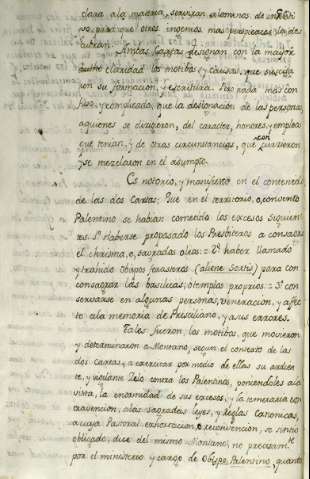 clara a la materia, serviran a lo menos de
vo, para que otros ingenios mas perspicaces la des
cubran.
Ambas Cartas designan con la mayor
claridad los motibos y causas, que
on su formacion, y escritura. Pero nada mas con
fuso, y complicado, que la designacion de las personas
aquienes se dirigieron, del caracter, honores, y empleos
que tenian, y de otras circunstancias, que con
y se mezclaron en el asumpto.
Es notorio, y manifiesto en el contenido
de las dos Cartas; Que en el territorio, o, convento
Palentino se habian cometido los excesos siguien
tes. 1º Haberse propasado los Presbiteros a consagrar
el chrisma, o, sagradas oleos = 2º haber llamado
y trahido Obispos forasteros (alienæ sortis) para con
consagrar las basilicas, o templos proprios = 3º con
servarse en algunas personas, veneracion, y afec
to a la memoria de Prisciliano, y a sus errores.
Tales fueron, los motibos, que movieron
y determinaron a Montano, segun el contexto de las
dos cartas, a exercitar por medio de ellas su ardien
te, y vigilante Zelo contra los Palentinos, poniendoles a la
vista, la enormidad de sus excesos, y la temeraria con
travencion, a las sagradas leyes, y Reglas Canonicas,
a cuia Pastoral exhortacion, o reconvencion, se sintio
obligado, dice del mismo Montano, no precisamte
por el ministerio y cargo de Obispo Palentino, quanto